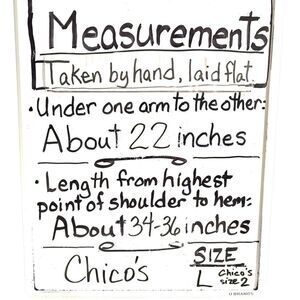 Measurements
Taken by hand, laid flat.
• Under one arm to the other:
About 22 inches
• Length from highest
point of shoulder to hem:
About 34-36 inches
Chico's
SIZE
L Chico's
size 2
U BRANDS